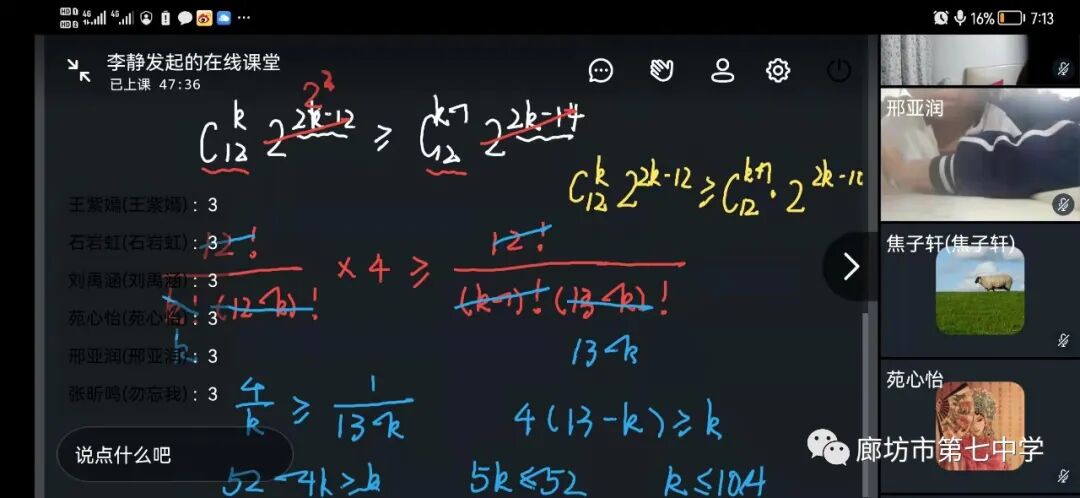 HD1 4G 4G 16% 7:13
HD2
李静发起的在线课堂
已上课 47:36
2²
C₁₂ᵏ 2²ᵏ⁻¹² ≥ C₁₂ᵏ⁻¹ 2²ᵏ⁻¹⁴
C₁₂ᵏ 2²ᵏ⁻¹² ≥ C₁₂ᵏ⁺¹ · 2²ᵏ⁻¹⁰
王紫嫣(王紫嫣)：3
石岩虹(石岩虹)：3
刘禹涵(刘禹涵)：3
苑心怡(苑心怡)：3
邢亚润(邢亚润)：3
张昕鸣(勿忘我)：3
12! / k!(12-k)! × 4 ≥ 12! / (k-1)!(13-k)!
k
13-k
4/k ≥ 1/(13-k)
4(13-k) ≥ k
52-4k ≥ k
5k ≤ 52
k ≤ 10.4
说点什么吧
邢亚润
焦子轩(焦子轩)
苑心怡
廊坊市第七中学